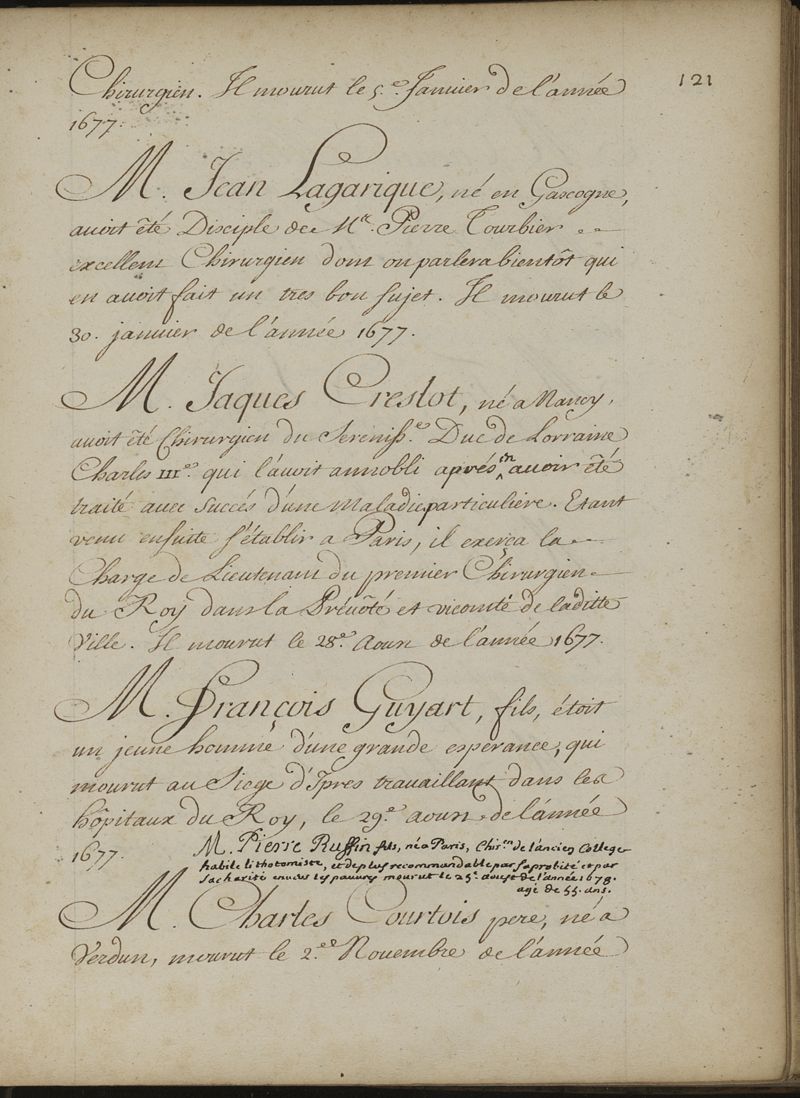 121
Chirurgien. Il mourut le 5.e Janvier de l'année
1677.
M. Jean Lagarique, né en Gascogne,
avoit été Disciple de Me. Pierre Tourbier
excellent Chirurgien dont on parlera bientôt qui
en avoit fait un tres bon sujet. Il mourut le
30. janvier de l'année 1677.
M. Jaques Creslot, né a Nancy,
avoit été Chirurgien du Sereniss.e Duc de Lorraine
Charles III.e qui l'avoit annobli aprés en avoir été
traité avec succés d'une Maladie particuliere. Etant
venu ensuite s'établir a Paris, il exerça la
Charge de Lieutenant du premier Chirurgien
du Roy dans la Prévôté et vicomté de laditte
Ville. Il mourut le 28.e Aoust de l'année 1677.
M. François Guyart, fils, étoit
un jeune homme d'une grande esperance, qui
mourut au Siege d'Ipres travaillant dans les
hôpitaux du Roy, le 29.e aoust de l'année
1677.
M. Pierre Ruffin fils, né a Paris, Chir.en de l'ancien College
habile lithotomiste, et deplus recommandable par sa probité et par
sa charité envers les pauvres mourut le 25.e aoust de l'année 1678.
agé de 55. ans.
M. Charles Courtois pere, né à
Verdun, mourut le 2.ee Novembre de l'année